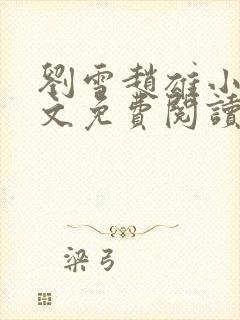 劉雪趙雄小
文免費閱讀
梁弓